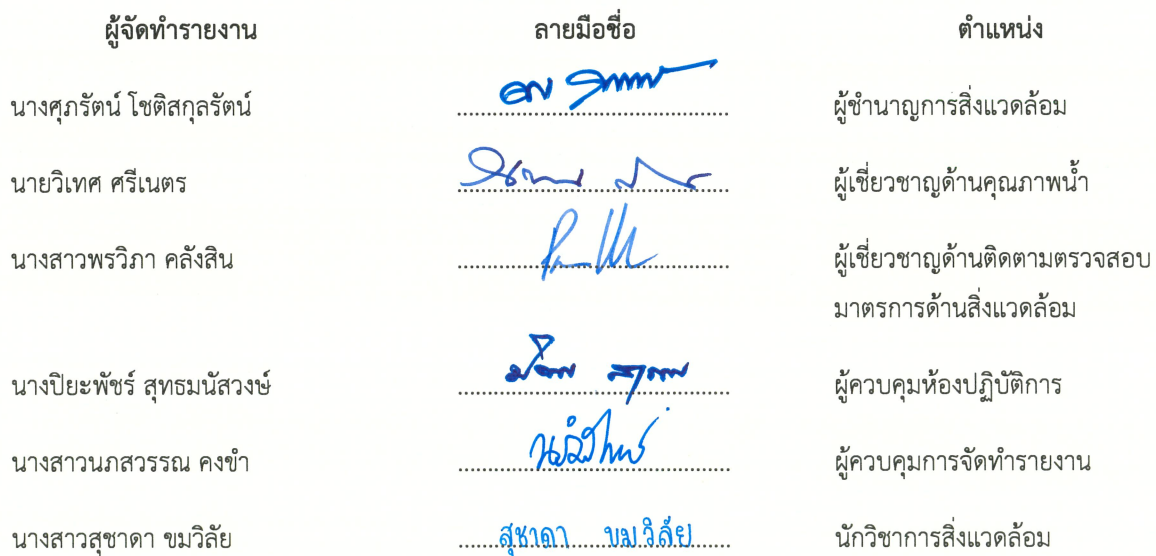 ผู้จัดทำรายงาน ลายมือชื่อ ตำแหน่ง
นางศุภรัตน์ โชติสกุลรัตน์ ผู้ชำนาญการสิ่งแวดล้อม
นายวิเทศ ศรีเนตร ผู้เชี่ยวชาญด้านคุณภาพน้ำ
นางสาวพรวิภา คลังสิน ผู้เชี่ยวชาญด้านติดตามตรวจสอบ
มาตรการด้านสิ่งแวดล้อม
นางปิยะพัชร์ สุทธมนัสวงษ์ ผู้ควบคุมห้องปฏิบัติการ
นางสาวนภสวรรณ คงขำ ผู้ควบคุมการจัดทำรายงาน
นางสาวสุชาดา ขมวิลัย สุชาดา ขมวิลัย นักวิชาการสิ่งแวดล้อม